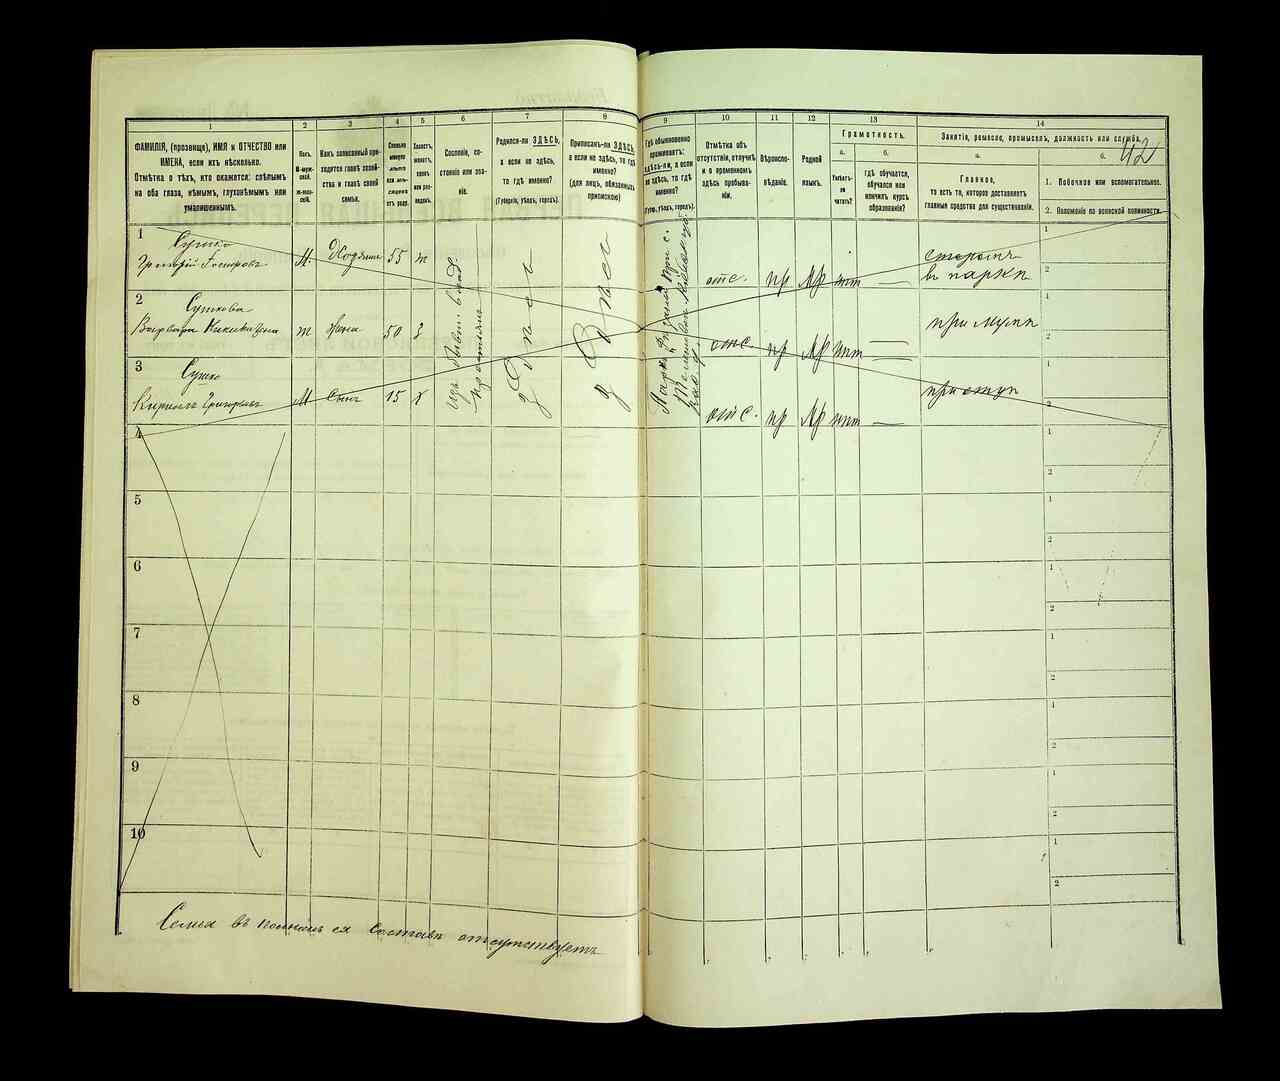 42
1
2
3
4
5
6
7
8
9
10
11
12
13
14
ФАМИЛІЯ, (прозвище), ИМЯ и ОТЧЕСТВО или
ИМЕНА, если ихъ нѣсколько.
Отмѣтка о тѣхъ, кто окажется: слѣпымъ
на оба глаза, нѣмымъ, глухонѣмымъ или
умалишеннымъ.
Полъ.
М-муж-
ской.
ж-жен-
скій.
Какъ записанный при-
ходится главѣ хозяй-
ства и главѣ своей
семьи.
Сколько
минуло
лѣтъ
или мѣ-
сяцевъ
отъ роду.
Холостъ,
женатъ,
вдовъ
или раз-
веденъ.
Сословіе, со-
стояніе или зва-
ніе.
Родился-ли ЗДѢСЬ,
а если не здѣсь,
то гдѣ именно?
(Губернія, уѣздъ, городъ).
Приписанъ-ли ЗДѢСЬ,
а если не здѣсь, то гдѣ
именно?
(для лицъ, обязанныхъ
припискою)
Гдѣ обыкновенно
проживаетъ:
здѣсь-ли, а если
не здѣсь, то гдѣ
именно?
(Губерн., уѣздъ, городъ).
Отмѣтка объ
отсутствіи, отлучкѣ
и о временномъ
здѣсь пребыва-
ніи.
Вѣроиспо-
вѣданіе.
Родной
языкъ.
Грамотность.
а.
Умѣетъ-
ли
читать?
б.
гдѣ обучается,
обучался или
кончилъ курсъ
образованія?
Занятіе, ремесло, промыселъ, должность или служба.
а.
Главное,
то есть то, которое доставляетъ
главныя средства для существованія.
б.
1. Побочное или вспомогательное.
2. Положеніе по воинской повинности.
1
Сушко
Григорій
М. 55
отс. пр Мр —
въ паркѣ
1
2
2
Сушкова
Варвара
жена 50
отс. пр Мр —
при мужѣ
1
2
3
Сушко
Кирилъ
М сынъ 15 х
отс. пр Мр —
1
2
Изъ бывш.
Здѣсь
Здѣсь
4
1
2
5
1
2
6
1
2
7
1
2
8
1
2
9
1
2
10
1
2
Семья въ полномъ ея составѣ отсутствуетъ